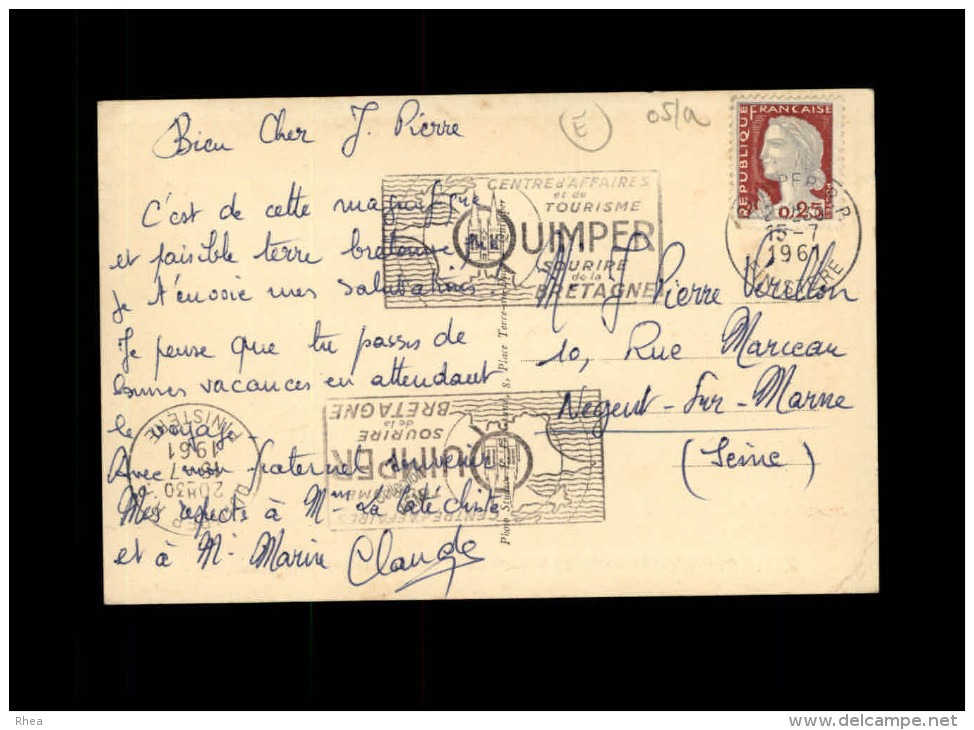 Bien Cher J. Pierre
C'est de cette magnifique
et paisible terre bretonne
je t'envoie mes salutations.
Je pense que tu passes de
bonnes vacances en attendant
le voyage.
Avec mon fraternel souvenir
Mes respects à Mme La
et à M. Marine
Claude
E
05/a
CENTRE d'AFFAIRES
et de
TOURISME
QUIMPER
SOURIRE
de la
BRETAGNE
REPUBLIQUE FRANCAISE
0,25
QUIMPER R.P.
15-7
1961
FINISTERE
M. J Pierre
10, Rue Marceau
Nogent-Sur-Marne
(Seine)
CENTRE d'AFFAIRES
QUIMPER
SOURIRE
de la
BRETAGNE
20H30
1961
FINISTERE
Rhea
www.delcampe.net